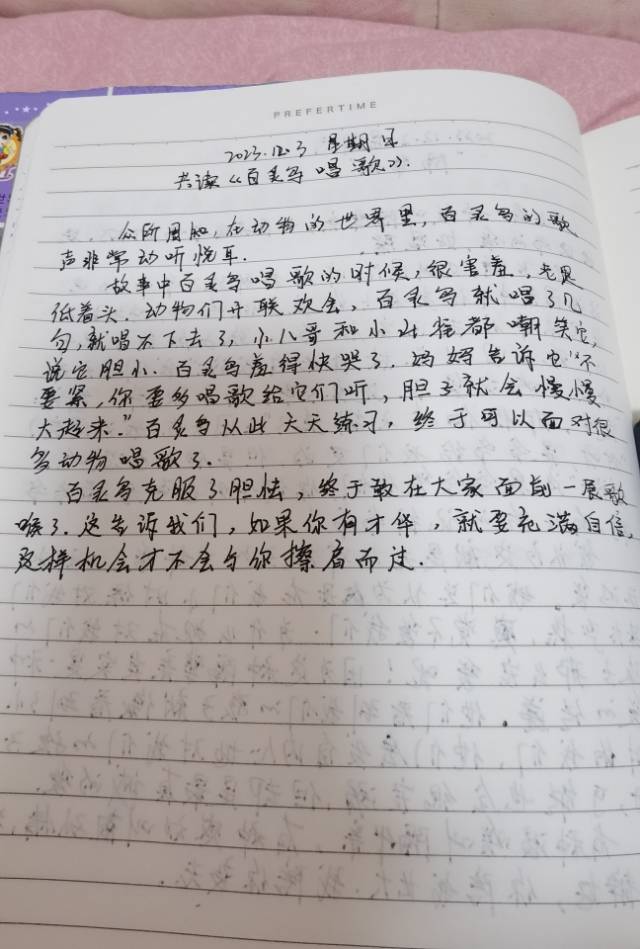 PREFERTIME
2023.12.3 星期日
共读《百灵鸟唱歌》.
众所周知,在动物的世界里,百灵鸟的歌
声非常动听悦耳.
故事中百灵鸟唱歌的时候,很害羞,老是
低着头.动物们开联欢会,百灵鸟就唱了几
句,就唱不下去了,小八哥和小杜鹃都嘲笑它,
说它胆小.百灵鸟羞得快哭了.妈妈告诉它“不
要紧,你要多唱歌给它们听,胆子就会慢慢
大起来.”百灵鸟从此天天练习,终于可以面对很
多动物唱歌了.
百灵鸟克服了胆怯,终于敢在大家面前一展歌
喉了.这告诉我们,如果你有才华,就要充满自信,
这样机会才不会与你擦肩而过.